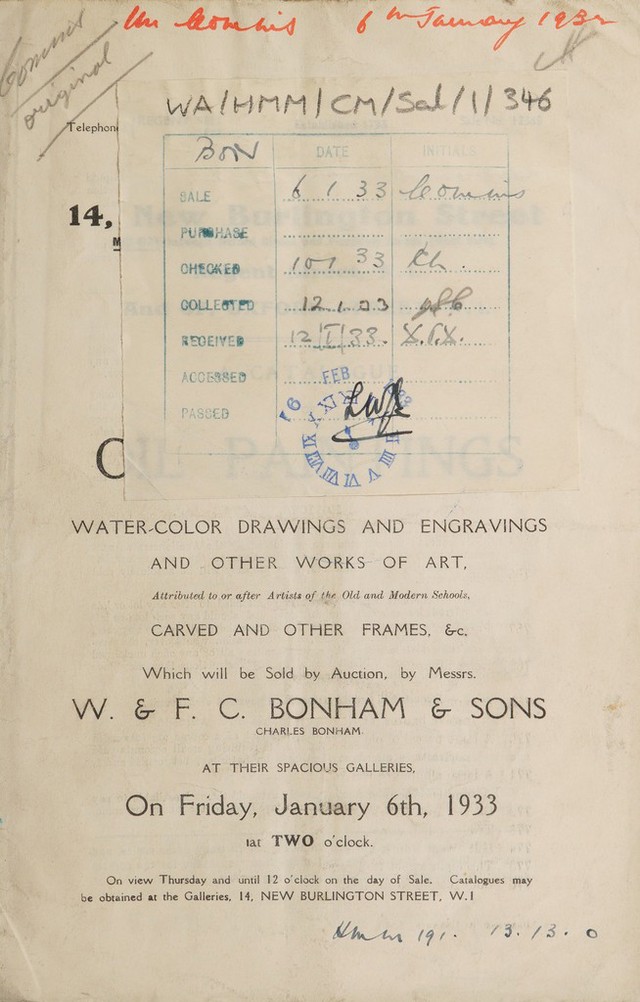 Mr Comins 6th January 1932
Comins
original
WA/HMM/CM/Sal/1/346
Telephon
BON DATE INITIALS
SALE 6 1 33 Comins
14, New Burlington Street
PURCHASE
CHECKED 10 1 33
COLLECTED 12.1.33
RECEIVED 12/I/33.
ACCESSED
FEB
PASSED
OIL PAINTINGS
WATER-COLOR DRAWINGS AND ENGRAVINGS
AND OTHER WORKS OF ART,
Attributed to or after Artists of the Old and Modern Schools,
CARVED AND OTHER FRAMES, &c.
Which will be Sold by Auction, by Messrs.
W. & F. C. BONHAM & SONS
CHARLES BONHAM.
AT THEIR SPACIOUS GALLERIES,
On Friday, January 6th, 1933
at TWO o'clock.
On view Thursday and until 12 o'clock on the day of Sale. Catalogues may
be obtained at the Galleries, 14, NEW BURLINGTON STREET, W.1
191. 13. 13. 0